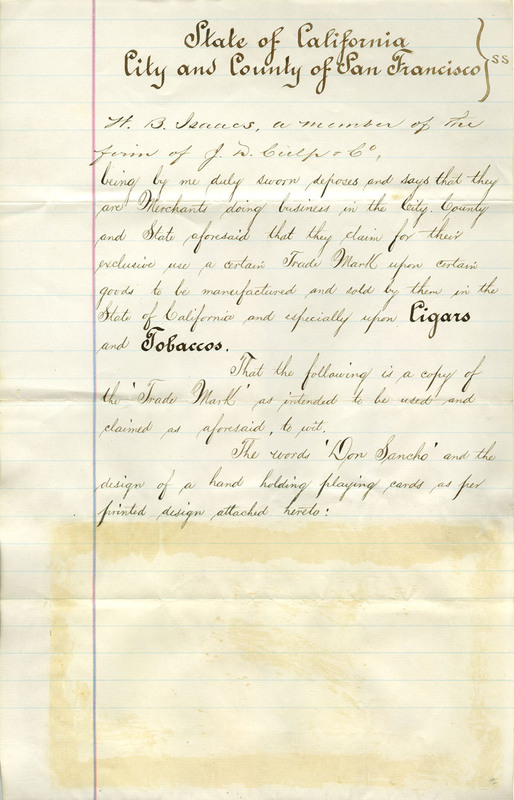 State of California
City and County of San Francisco } SS
W. B. Isaacs, a member of the
firm of J. D. Culp & Co,
being by me duly sworn deposes and says that they
are Merchants doing business in the City, County
and State aforesaid that they claim for their
exclusive use a certain Trade Mark upon certain
goods to be manufactured and sold by them in the
State of California and especially upon Cigars
and Tobaccos.
That the following is a copy of
the 'Trade Mark' as intended to be used and
claimed as aforesaid, to wit.
The words 'Don Sancho' and the
design of a hand holding playing cards as per
printed design attached hereto: